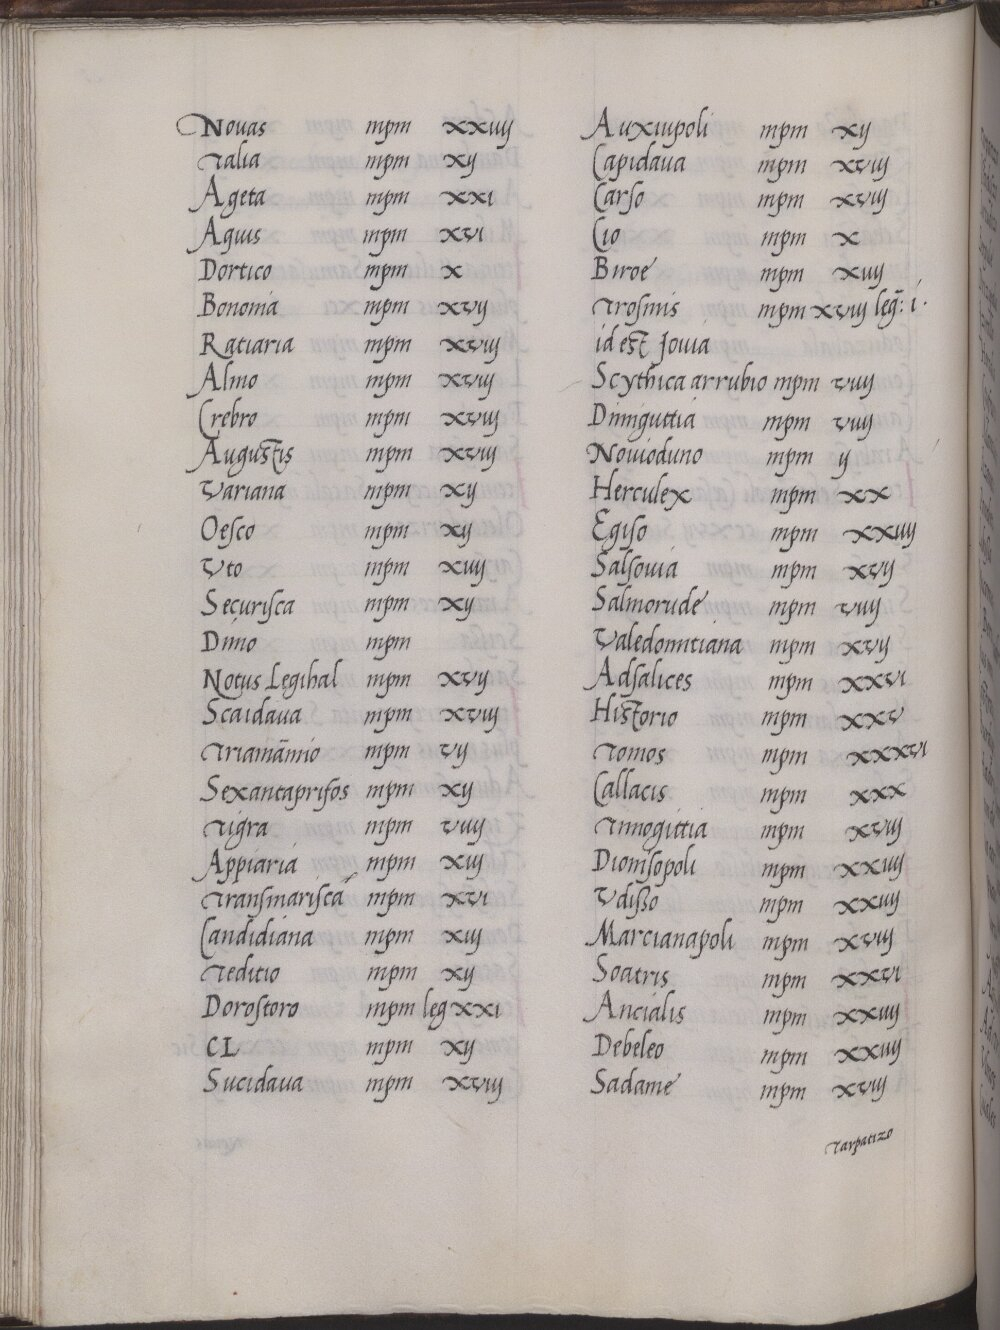 Novas mpm xxiiij
Talia mpm xij
Ageta mpm xxi
Aquis mpm xvi
Dortico mpm x
Bononia mpm xvij
Ratiaria mpm xviij
Almo mpm xviij
Crebro mpm xviij
Augustis mpm xviij
Variana mpm xij
Oesco mpm xij
Vto mpm xiiij
Securisca mpm xij
Dimo mpm
Notus Legihal mpm xvij
Scaidava mpm xviij
Triamāmio mpm vij
Sexantaprisos mpm xij
Tigra mpm viiij
Appiaria mpm xiij
Transmariscā mpm xvi
Candidiana mpm xiij
Teditio mpm xij
Dorostoro mpm leg xxi
CL mpm xij
Sucidava mpm xviij
Auxiupoli mpm xij
Capidava mpm xviij
Carso mpm xviij
Cio mpm x
Biroe mpm xiiij
Trosmis mpm xviij leg: i.
id est Jovia
Scythica arrubio mpm viiij
Diniguttia mpm viiij
Novioduno mpm ij
Herculex mpm xx
Egiso mpm xxiiij
Salsovia mpm xvij
Salmorude mpm viiij
Valedomitiana mpm xvij
Adsalices mpm xxvi
Historio mpm xxv
Tomos mpm xxxvi
Callacis mpm xxx
Timogittia mpm xviij
Dionisopoli mpm xxiiij
Vdisso mpm xxiiij
Marcianapoli mpm xviij
Soatris mpm xxvi
Ancialis mpm xxiiij
Debeleo mpm xxiiij
Sadame mpm xviij
Tarpatizo